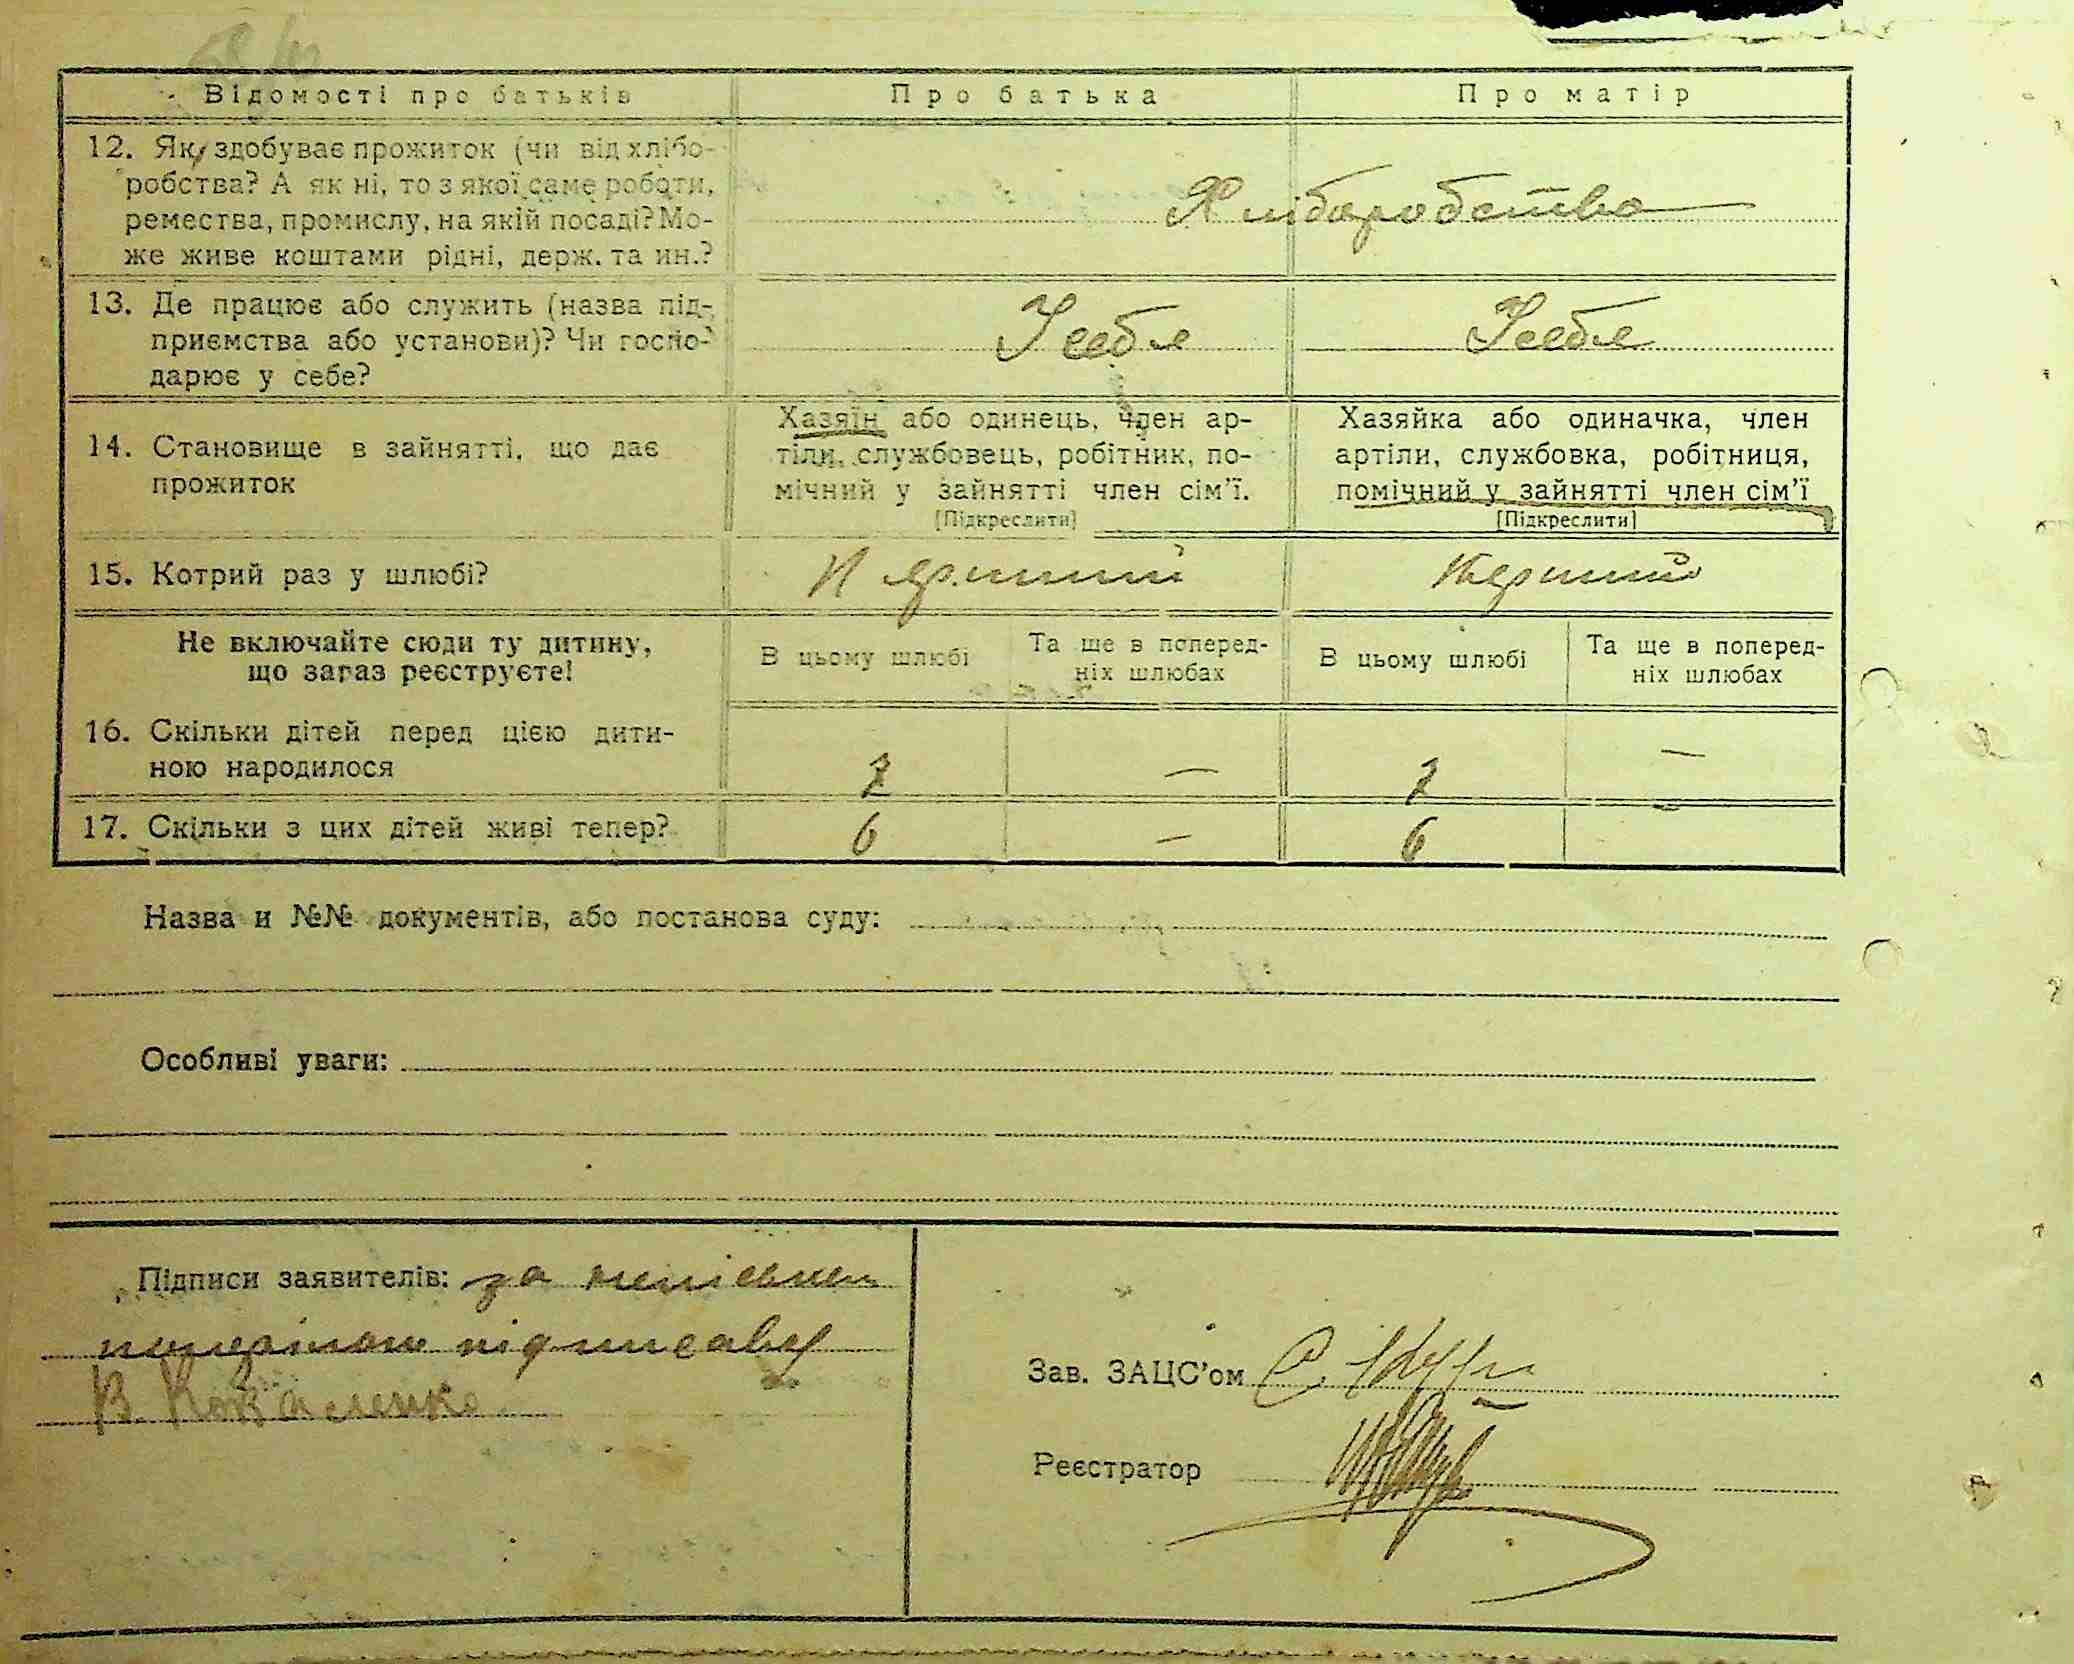 Відомості про батьків Про батька Про матір
12. Як здобуває прожиток (чи від хлібо-
робства? А як ні, то з якої саме роботи,
ремества, промислу, на якій посаді? Мо-
же живе коштами рідні, держ. та ин.?
Хліборобство
13. Де працює або служить (назва під-
приємства або установи)? Чи госпо-
дарює у себе?
У себе У себе
14. Становище в зайнятті, що дає
прожиток
Хазяїн або одинець, член ар-
тіли, службовець, робітник, по-
мічний у зайнятті член сім'ї.
[Підкреслити]
Хазяйка або одиначка, член
артіли, службовка, робітниця,
помічний у зайнятті член сім'ї
[Підкреслити]
15. Котрий раз у шлюбі? Перший Перший
Не включайте сюди ту дитину,
що зараз реєструєте!
В цьому шлюбі
Та ще в поперед-
ніх шлюбах
В цьому шлюбі
Та ще в поперед-
ніх шлюбах
16. Скільки дітей перед цією дити-
ною народилося
7 — 7 —
17. Скільки з цих дітей живі тепер? 6 — 6
Назва и №№ документів, або постанова суду:
Особливі уваги:
Підписи заявителів: за
підписав
В. Коваленко
Зав. ЗАЦС'ом С.
Реєстратор